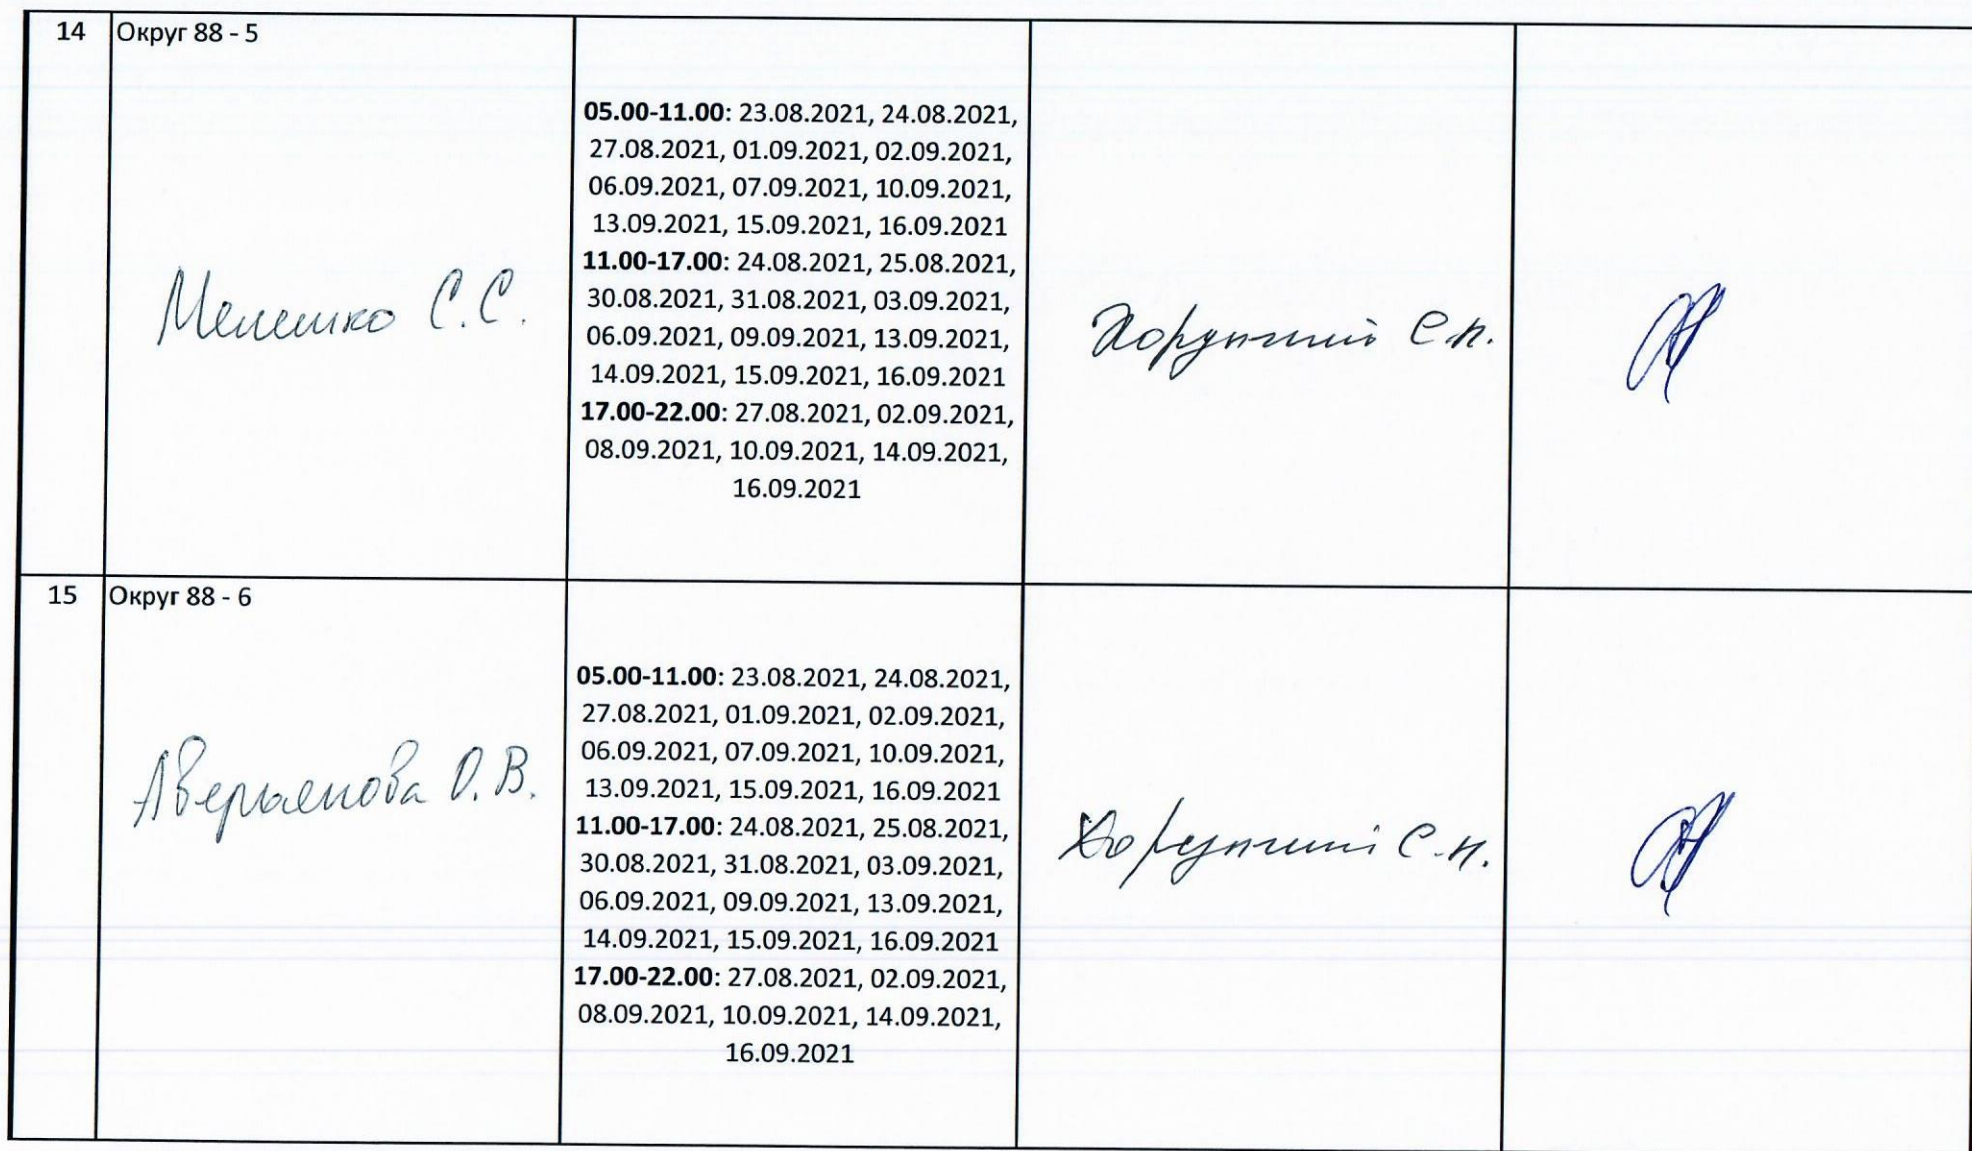 14 Округ 88 - 5
Мелешко С.С.
05.00-11.00: 23.08.2021, 24.08.2021,
27.08.2021, 01.09.2021, 02.09.2021,
06.09.2021, 07.09.2021, 10.09.2021,
13.09.2021, 15.09.2021, 16.09.2021
11.00-17.00: 24.08.2021, 25.08.2021,
30.08.2021, 31.08.2021, 03.09.2021,
06.09.2021, 09.09.2021, 13.09.2021,
14.09.2021, 15.09.2021, 16.09.2021
17.00-22.00: 27.08.2021, 02.09.2021,
08.09.2021, 10.09.2021, 14.09.2021,
16.09.2021
Хорунжий С.Н.
15 Округ 88 - 6
Аверьянова О.В.
05.00-11.00: 23.08.2021, 24.08.2021,
27.08.2021, 01.09.2021, 02.09.2021,
06.09.2021, 07.09.2021, 10.09.2021,
13.09.2021, 15.09.2021, 16.09.2021
11.00-17.00: 24.08.2021, 25.08.2021,
30.08.2021, 31.08.2021, 03.09.2021,
06.09.2021, 09.09.2021, 13.09.2021,
14.09.2021, 15.09.2021, 16.09.2021
17.00-22.00: 27.08.2021, 02.09.2021,
08.09.2021, 10.09.2021, 14.09.2021,
16.09.2021
Хорунжий С.Н.